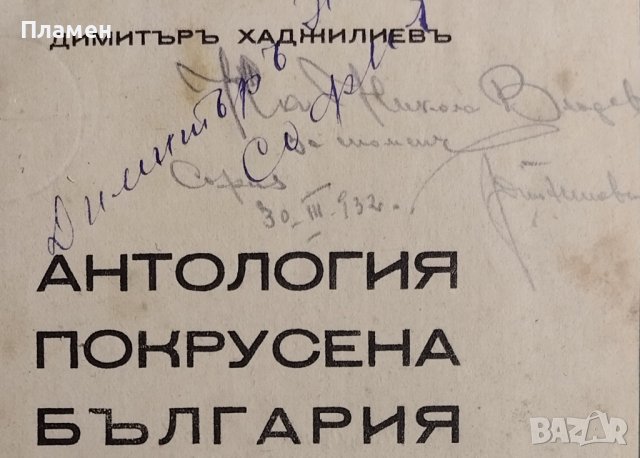 Пламен
ДИМИТЪРЪ ХАДЖИЛИЕВЪ
Димитъръ
София
На Никола Владев
За спомен
София
30.III.932г.
АНТОЛОГИЯ
ПОКРУСЕНА
БЪЛГАРИЯ
BAZAR